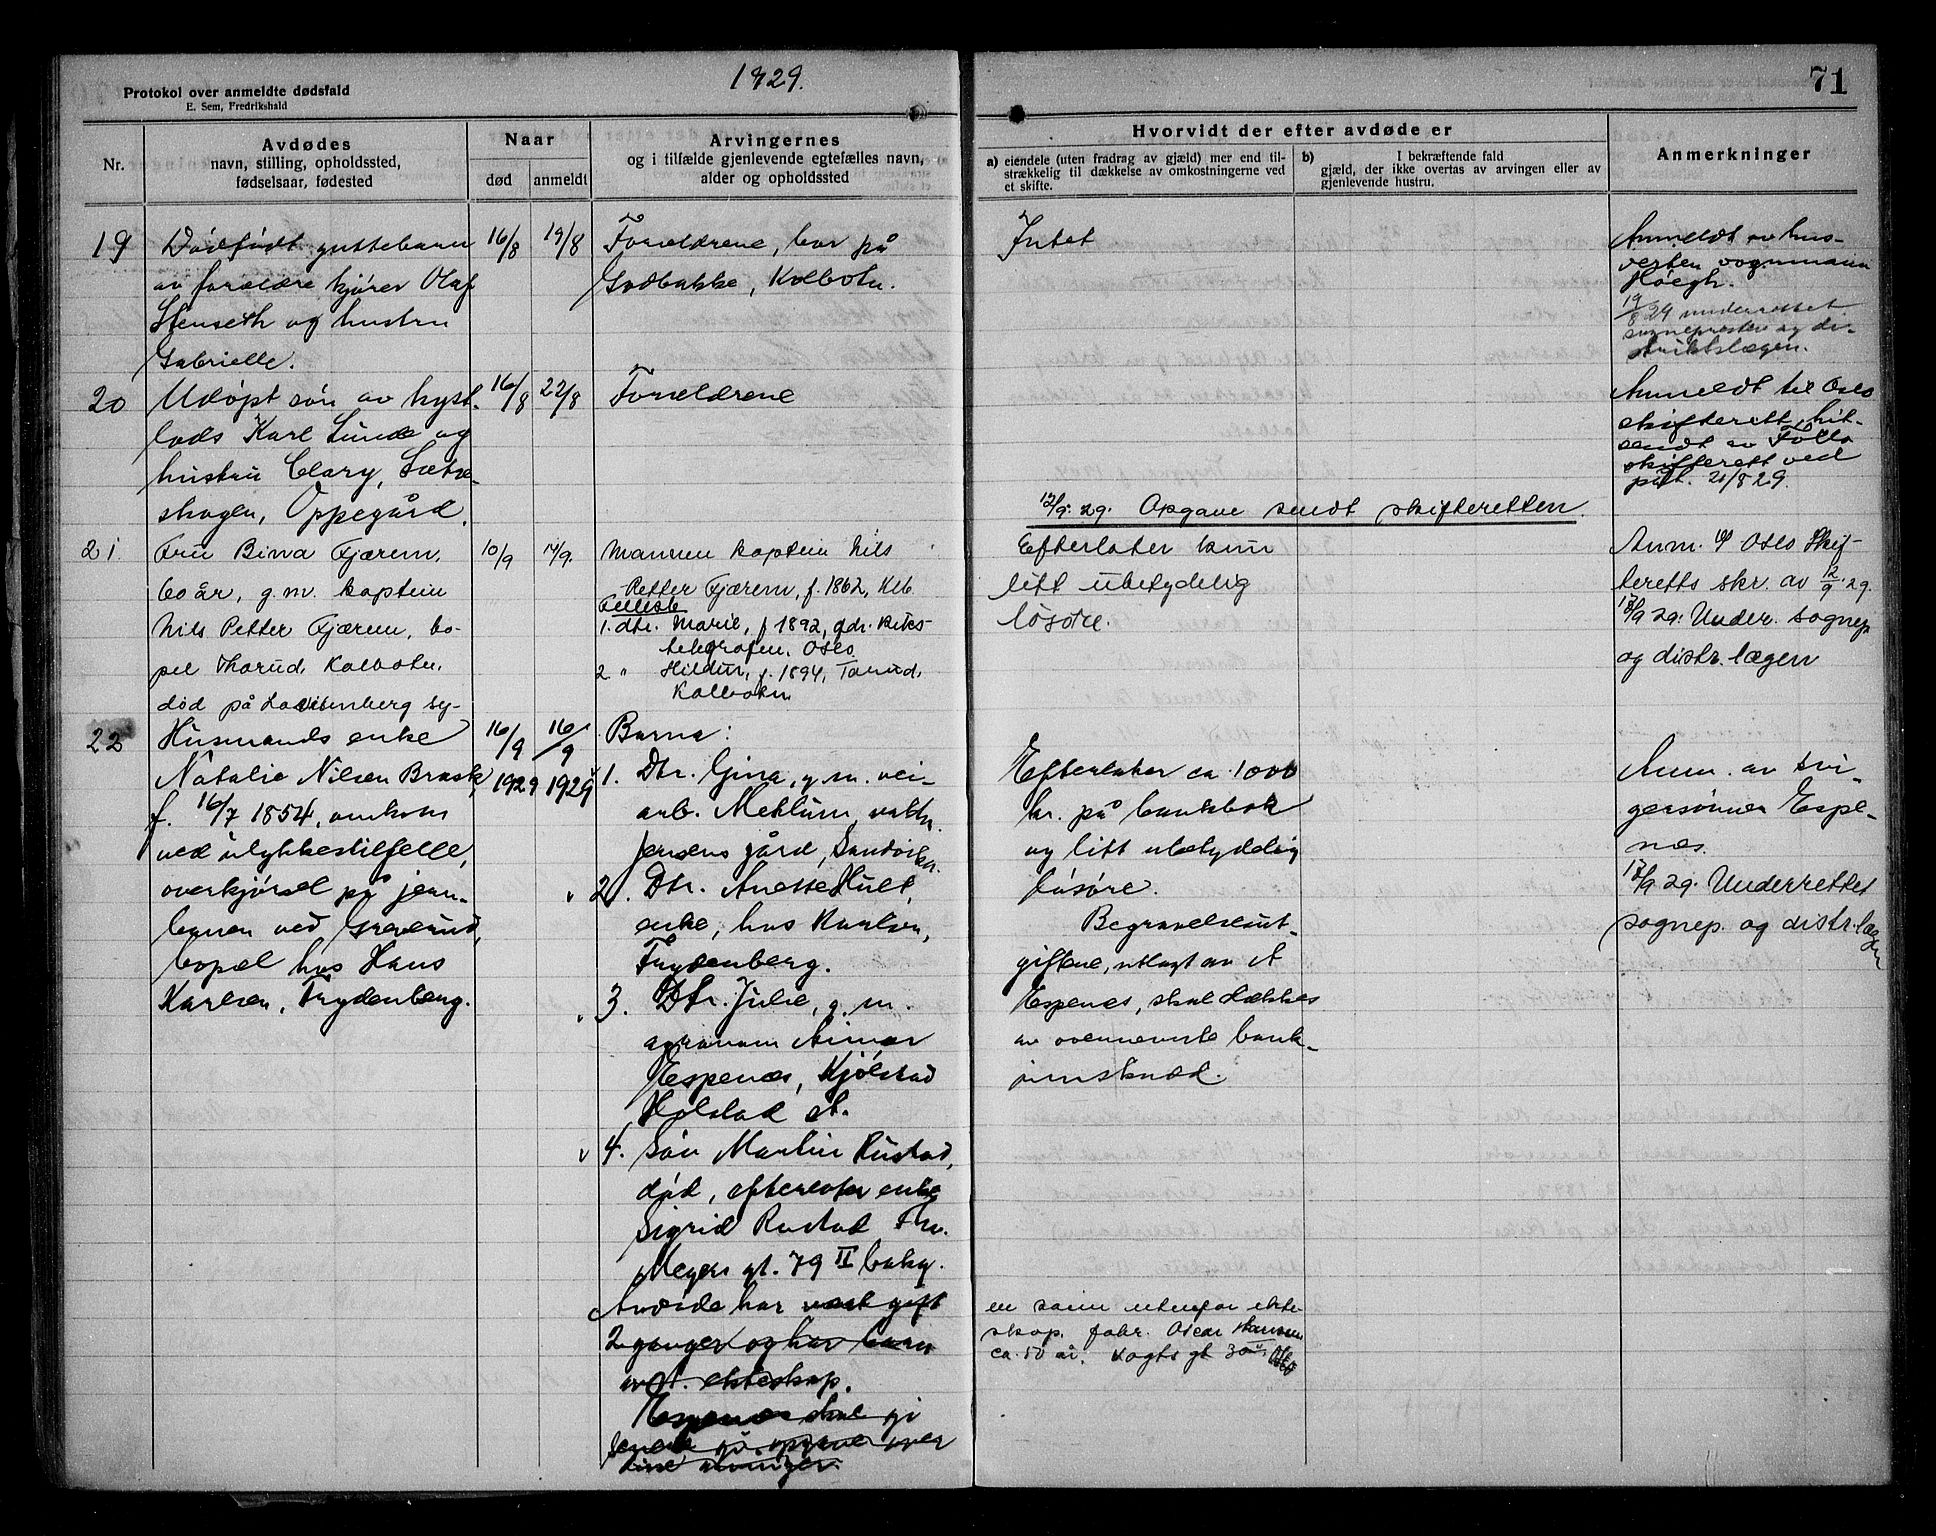 Protokol over anmeldte dødsfald
E. Sem, Fredrikshald
1929.
71
Nr.
Avdødes
navn, stilling, opholdssted,
fødselsaar, fødested
Naar
død
anmeldt
Arvingernes
og i tilfælde gjenlevende egtefælles navn,
alder og opholdssted
Hvorvidt der efter avdøde er
a) eiendele (uten fradrag av gjæld) mer end til-
strækkelig til dækkelse av omkostningerne ved
et skifte.
b) I bekræftende fald
gjæld, der ikke overtas av arvingen eller av
gjenlevende hustru.
Anmerkninger
19
Dødfødt guttebarn
av forældre kjører Olaf
Stenseth og hustru
Gabrielle.
16/8
19/8
Forældrene, bor på
Godbakke, Kolbotn.
Intet
Anmeldt av hus-
verten vognmann
Høegh.
19/8 29 underrettet
sognepresten og di-
striktslægen.
20
Udøpt søn av hyst.
lods Karl Lunde og
hustru Clary, Sætre-
skogen, Oppegård.
16/8
22/8
Forældrene
Anmeldt til Oslo
skifterett, hit-
sendt av Follo
skifterett ved
påt. 21/8 29.
12/9. 29. Opgave sendt skifteretten.
21.
Fru Bina Fjærem,
60 år, g.m. kaptein
Nils Petter Fjærem, bo-
pel Thorud, Kolbotn.
død på Lovisenberg sy-
10/9
14/9.
Mannen kaptein Nils
Petter Fjærem, f. 1862, Klb.
Fellesb.
1. dtr. Marie, f 1892, adr. Riks-
telegrafen, Oslo
2 " Hildur, f. 1894, Tarud,
Kolbotn
Efterlater kun
litt ubetydelig
løsøre.
Anm. Oslo Skif-
teretts skr. av 12/9. 29.
13/9 29. Under. sognep
og distr. lægen
22
Husmands enke
Natalie Nilsen Brask
f. 16/7 1854, omkom
ved ulykkestilfelle,
overkjørsel på jern-
banen ved Greverud,
bopæl hos Hans
Karlsen, Frydenberg.
16/9
1929
16/9
1929
Barna:
1. Dtr. Gina, g.m. vei-
arb. Mehlum,
Jensens gård, Sandvika.
2. Dtr. Anette Hult,
enke, hos Karlsen,
Frydenberg.
3. Dtr. Julie, g. m.
agronom Aimar
Espenæs, Kjølstad
Holstad st.
4. Søn Martin Rustad,
død, efterlater enke
Sigrid Rustad Thv.
Meyers gt. 79 II bakg.
Avdøde har vært gift
2 ganger og har barn
av 1. ekteskap.
Espenæs skal gi
senere opgave over
disse arvinger.
Efterlater ca. 1000
kr. på bankbok
og litt ubetydelig
løsøre.
Begravelsesut-
giftene, utlagt av A
Espenæs, skal dækkes
av ovennevnte bank-
innskud.
en sønn utenfor ekte-
skap. fabr. Oscar Hansen
ca. 50 år. Vogts gt 30 Oslo
Anm. av svi-
gersønnen Espe-
næs.
17/9 29. Underrettet
sognep. og distr. lægen